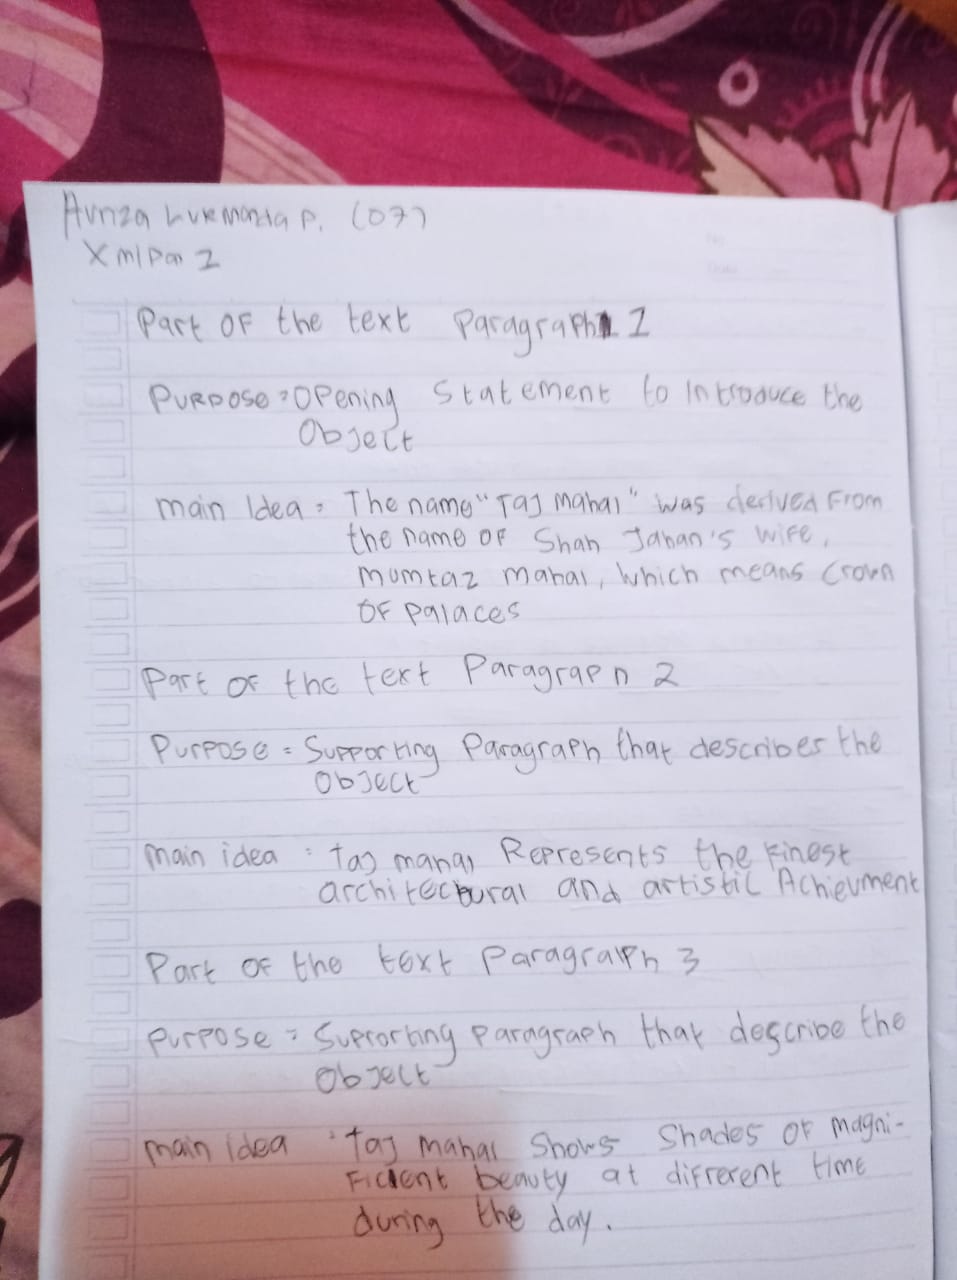 P. (07)
X 2
Part OF the text Paragraph 1
PURPOSE = Opening Statement to Introduce the
Object
main Idea = The name "Taj Mahal" was derived From
the name OF Shah Jahan's wife,
Mumtaz Mahal, which means Crown
OF palaces
Part OF the text Paragraph 2
Purpose = Supporting Paragraph that describes the
Object
main idea : Taj mahal Represents the Finest
architectural and artistic Achievment
Part OF the text Paragraph 3
purpose = Supporting paragraph that describe the
Object
main idea : Taj Mahal Shows Shades OF magni-
Ficient beauty at different time
during the day.